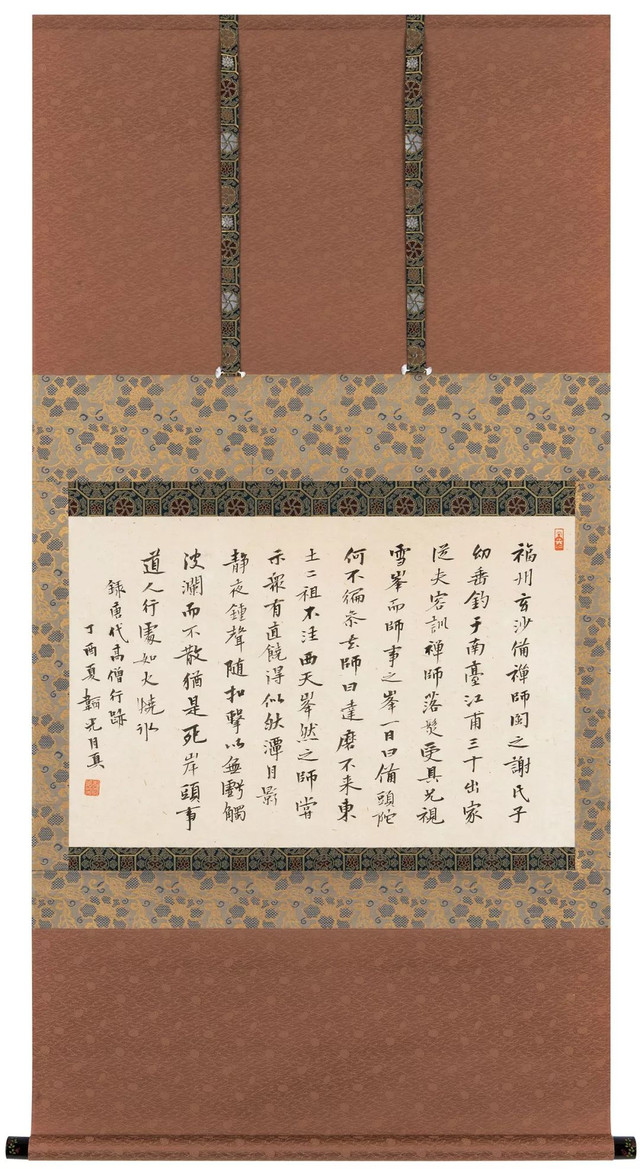 福州玄沙備禪師閩之謝氏子
幼垂釣于南臺江甫三十出家
從夫容訓禪師落髮受具兄視
雪峯而師事之峯一日曰備頭陀
何不徧叅去師曰達磨不来東
土二祖不往西天峯然之師嘗
示衆有直饒得似秋潭月影
静夜鍾聲隨扣擊以無虧觸
波瀾而不散猶是死岸頭事
道人行處如火燒冰
録唐代高僧行跡
丁酉夏